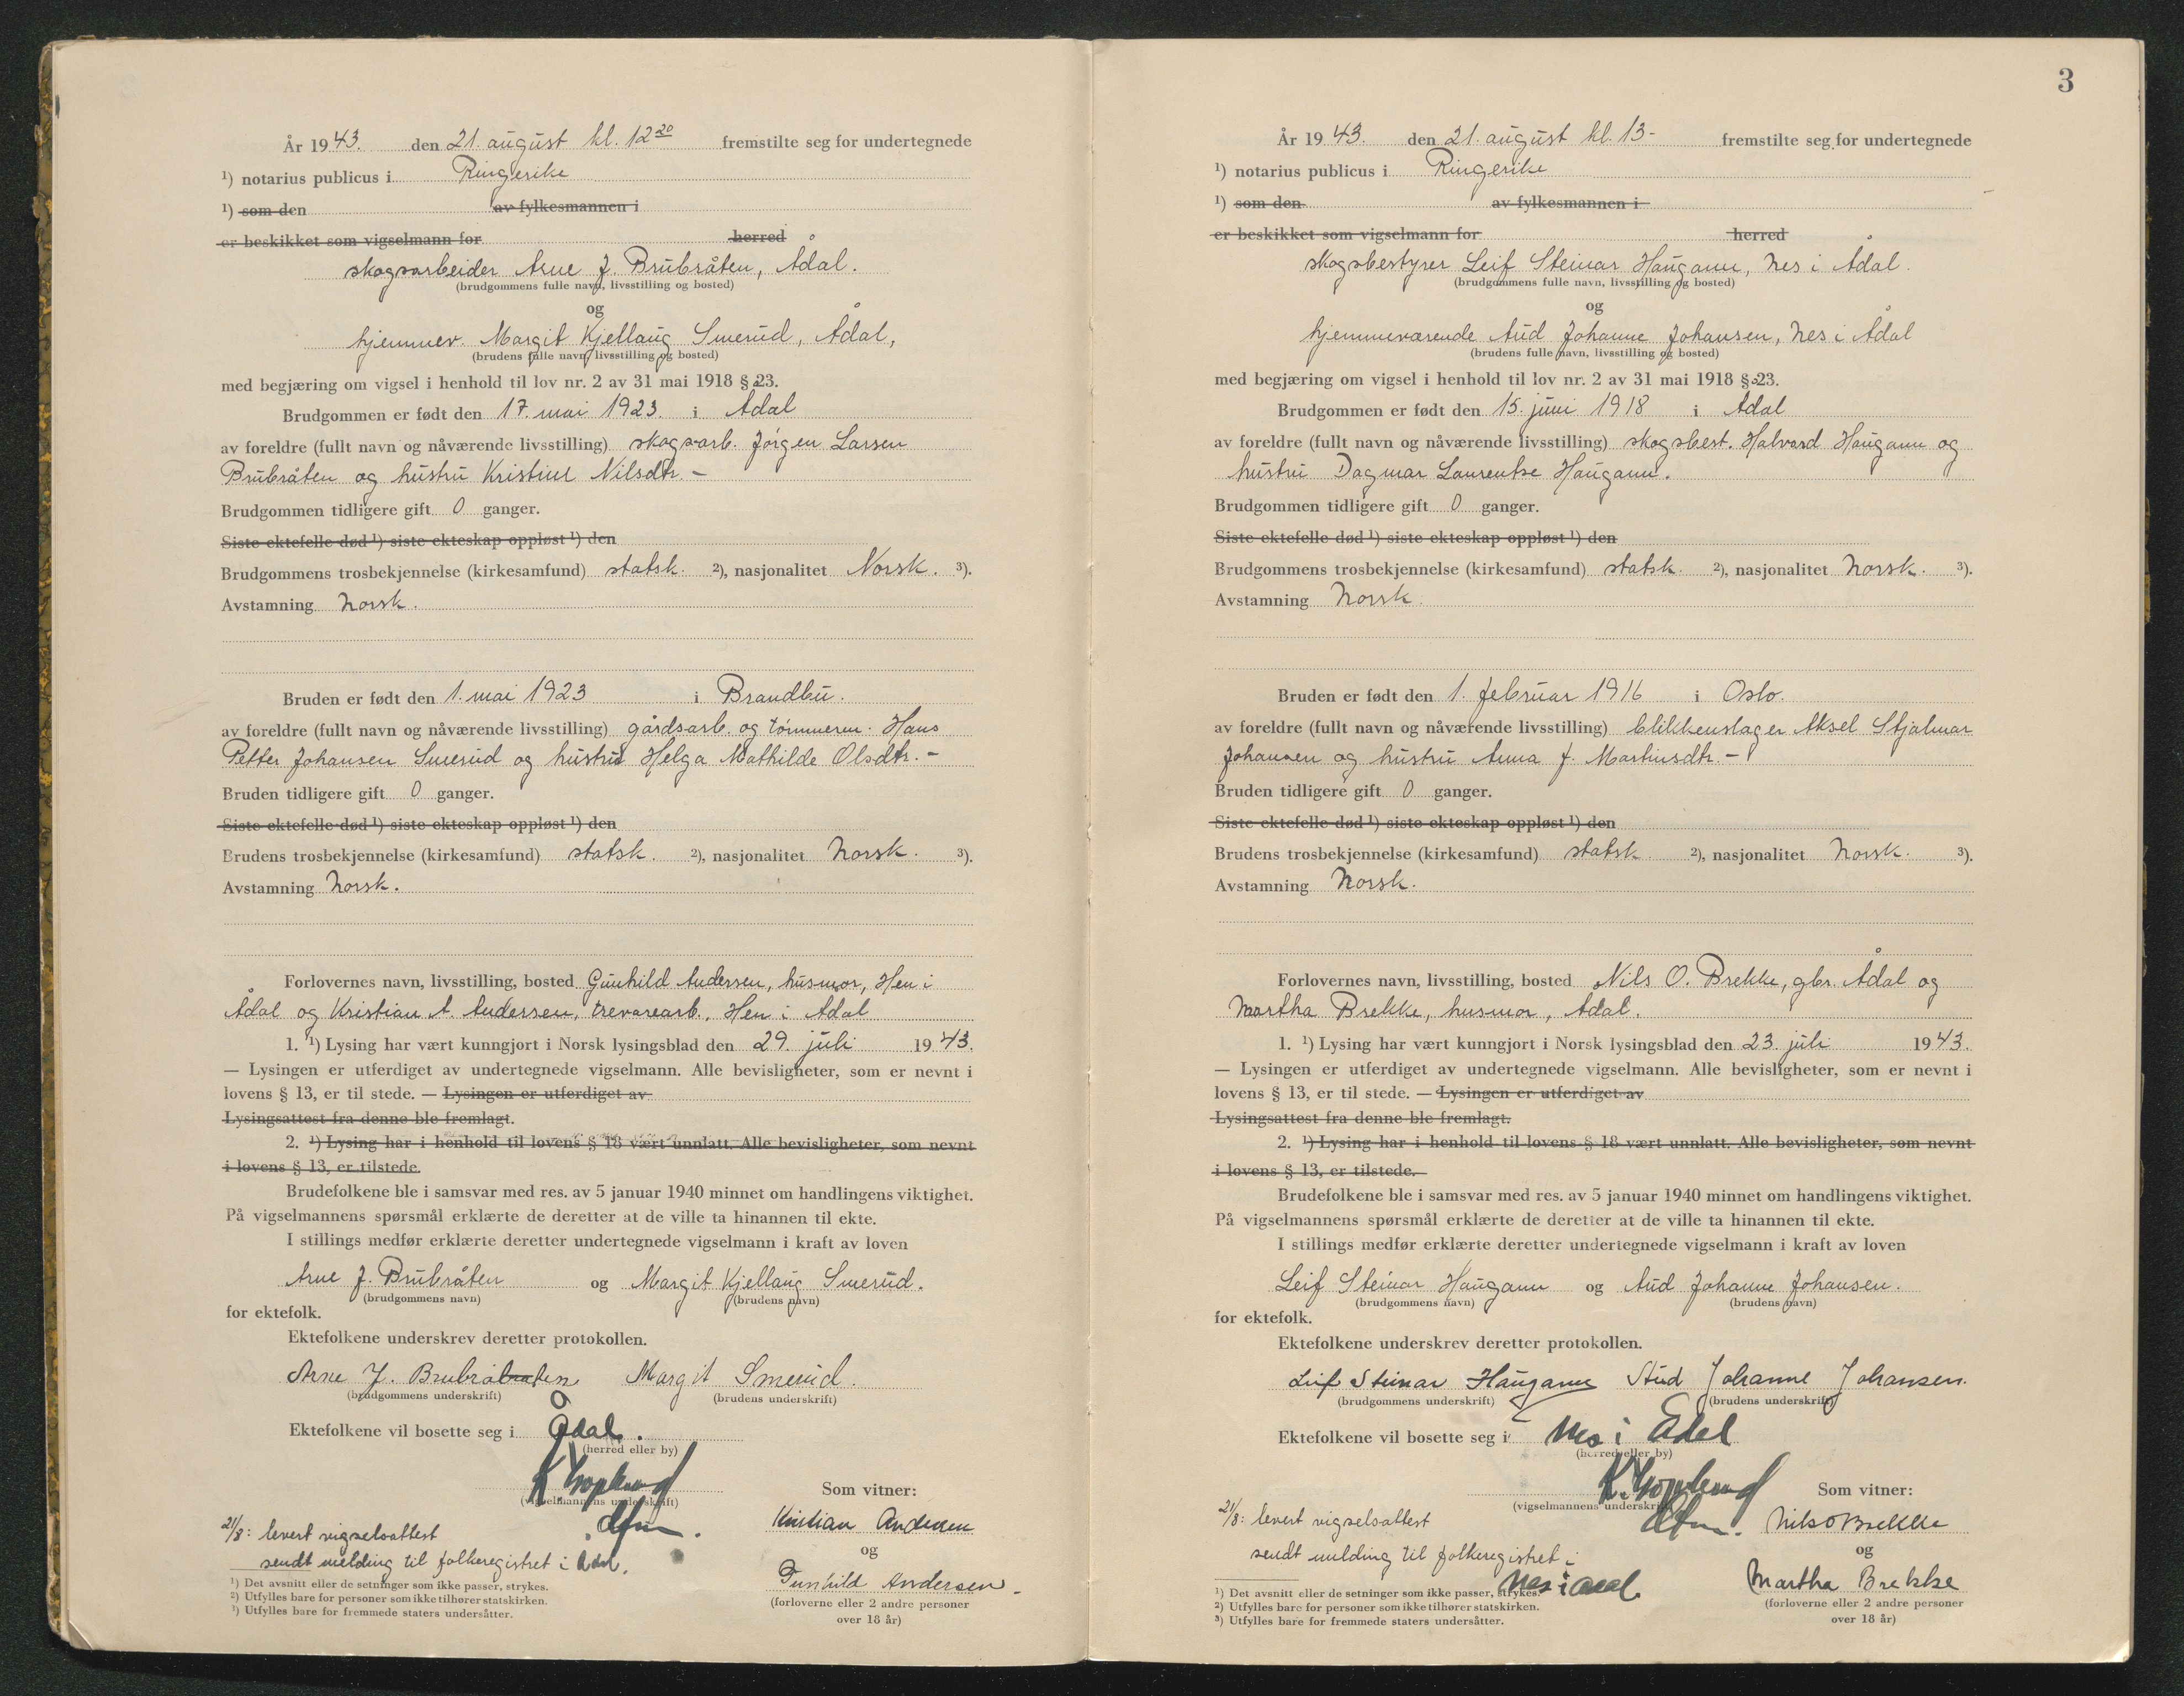 År 1943. den 21. august kl. 12²⁰ fremstilte seg for undertegnede
¹) notarius publicus i Ringerike
¹) som den av fylkesmannen i
er beskikket som vigselmann for herred
skogsarbeider Arne J. Brubråten, Ådal.
(brudgommens fulle navn, livsstilling og bosted)
og
hjemmev. Margit Kjellaug Smerud, Ådal,
(brudens fulle navn, livsstilling og bosted)
med begjæring om vigsel i henhold til lov nr. 2 av 31 mai 1918 § 23.
Brudgommen er født den 17. mai 1923. i Ådal
av foreldre (fullt navn og nåværende livsstilling) skogsarb. Jörgen Larsen
Brubråten og hustru Kristine Nilsdtr. -
Brudgommen tidligere gift 0 ganger.
Siste ektefelle død ¹) siste ekteskap oppløst ¹) den
Brudgommens trosbekjennelse (kirkesamfund) statsk. ²), nasjonalitet Norsk. ³).
Avstamning Norsk.
Bruden er født den 1. mai 1923 i Brandbu.
av foreldre (fullt navn og nåværende livsstilling) gårdsarb. og tömmerm. Hans
Petter Johansen Smerud og hustru Helga Mathilde Olsdtr. -
Bruden tidligere gift 0 ganger.
Siste ektefelle død ¹) siste ekteskap oppløst ¹) den
Brudens trosbekjennelse (kirkesamfund) statsk. ²), nasjonalitet Norsk. ³).
Avstamning Norsk.
Forlovernes navn, livsstilling, bosted Gunhild Andersen, husmor, Hen i
Ådal og Kristian A. Andersen, trevarearb., Hen i Ådal
1. ¹) Lysing har vært kunngjort i Norsk lysingsblad den 29. juli 1943.
— Lysingen er utferdiget av undertegnede vigselmann. Alle bevisligheter, som er nevnt i
lovens § 13, er til stede. — Lysingen er utferdiget av
Lysingsattest fra denne ble fremlagt.
2. ¹) Lysing har i henhold til lovens § 18 vært unnlatt. Alle bevisligheter, som nevnt
i lovens § 13, er tilstede.
Brudefolkene ble i samsvar med res. av 5 januar 1940 minnet om handlingens viktighet.
På vigselmannens spørsmål erklærte de deretter at de ville ta hinannen til ekte.
I stillings medfør erklærte deretter undertegnede vigselmann i kraft av loven
Arne J. Brubråten og Margit Kjellaug Smerud.
(brudgommens navn) (brudens navn)
for ektefolk.
Ektefolkene underskrev deretter protokollen.
Arne J. Brubråten Margit Smerud.
(brudgommens underskrift) (brudens underskrift)
Ektefolkene vil bosette seg i Ådal.
(herred eller by)
(vigselmannens underskrift)
Som vitner:
21/8: levert vigselsattest
Kristian Andersen
sendt melding til folkeregistret i Ådal.
og
Gunhild Andersen
(forloverne eller 2 andre personer
over 18 år)
¹) Det avsnitt eller de setninger som ikke passer, strykes.
²) Utfylles bare for personer som ikke tilhører statskirken.
³) Utfylles bare for fremmede staters undersåtter.
3
År 1943. den 21. august kl. 13- fremstilte seg for undertegnede
¹) notarius publicus i Ringerike
¹) som den av fylkesmannen i
er beskikket som vigselmann for herred
skogsbestyrer Leif Steinar Haugann, Nes i Ådal.
(brudgommens fulle navn, livsstilling og bosted)
og
hjemmeværende Aud Johanne Johansen, Nes i Ådal
(brudens fulle navn, livsstilling og bosted)
med begjæring om vigsel i henhold til lov nr. 2 av 31 mai 1918 § 23.
Brudgommen er født den 15. juni 1918 i Ådal
av foreldre (fullt navn og nåværende livsstilling) skogsbest. Halvard Haugann og
hustru Dagmar Laurentse Haugann.
Brudgommen tidligere gift 0 ganger.
Siste ektefelle død ¹) siste ekteskap oppløst ¹) den
Brudgommens trosbekjennelse (kirkesamfund) statsk. ²), nasjonalitet Norsk. ³).
Avstamning Norsk.
Bruden er født den 1. februar 1916 i Oslo.
av foreldre (fullt navn og nåværende livsstilling) blikkenslager Aksel Hjalmar
Johansen og hustru Anna J. Martinsdtr. -
Bruden tidligere gift 0 ganger.
Siste ektefelle død ¹) siste ekteskap oppløst ¹) den
Brudens trosbekjennelse (kirkesamfund) statsk. ²), nasjonalitet Norsk. ³).
Avstamning Norsk.
Forlovernes navn, livsstilling, bosted Nils O. Brekke, gbr. Ådal og
Martha Brekke, husmor, Ådal.
1. ¹) Lysing har vært kunngjort i Norsk lysingsblad den 23. juli 1943.
— Lysingen er utferdiget av undertegnede vigselmann. Alle bevisligheter, som er nevnt i
lovens § 13, er til stede. — Lysingen er utferdiget av
Lysingsattest fra denne ble fremlagt.
2. ¹) Lysing har i henhold til lovens § 18 vært unnlatt. Alle bevisligheter, som nevnt
i lovens § 13, er tilstede.
Brudefolkene ble i samsvar med res. av 5 januar 1940 minnet om handlingens viktighet.
På vigselmannens spørsmål erklærte de deretter at de ville ta hinannen til ekte.
I stillings medfør erklærte deretter undertegnede vigselmann i kraft av loven
Leif Steinar Haugann og Aud Johanne Johansen.
(brudgommens navn) (brudens navn)
for ektefolk.
Ektefolkene underskrev deretter protokollen.
Leif Steinar Haugann Aud Johanne Johansen.
(brudgommens underskrift) (brudens underskrift)
Ektefolkene vil bosette seg i Nes i Ådal
(herred eller by)
(vigselmannens underskrift)
Som vitner:
21/8: levert vigselsattest
Nils O Brekke
sendt melding til folkeregistret i
Nes i Ådal.
og
Martha Brekke
(forloverne eller 2 andre personer
over 18 år)
¹) Det avsnitt eller de setninger som ikke passer, strykes.
²) Utfylles bare for personer som ikke tilhører statskirken.
³) Utfylles bare for fremmede staters undersåtter.